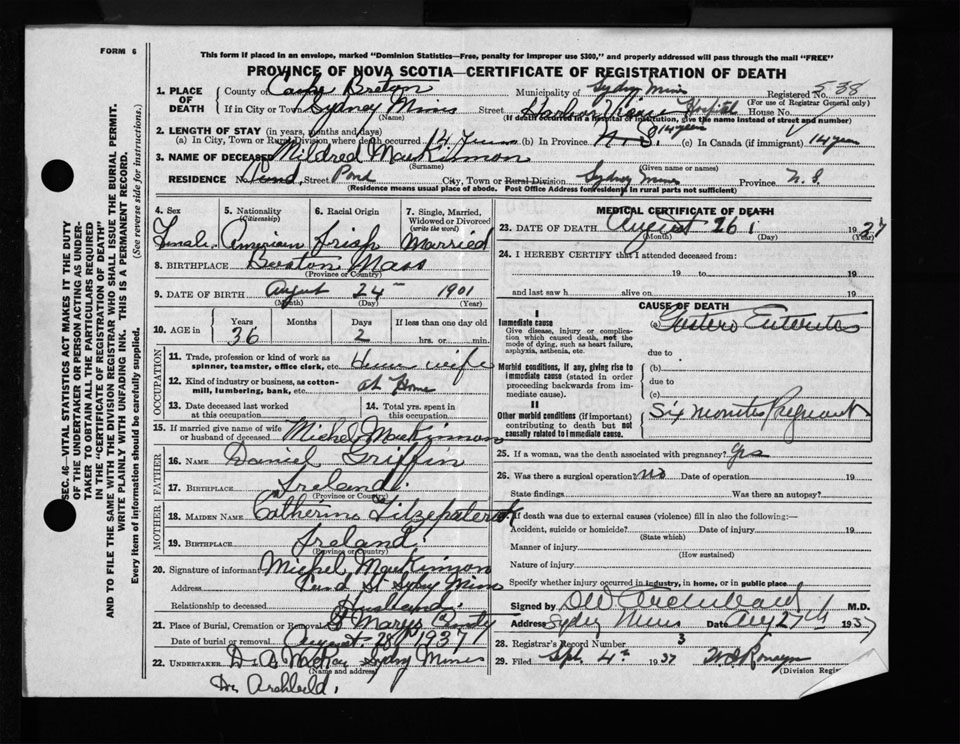 FORM 6
This form if placed in an envelope, marked "Dominion Statistics—Free, penalty for improper use $300," and properly addressed will pass through the mail "FREE"
PROVINCE OF NOVA SCOTIA—CERTIFICATE OF REGISTRATION OF DEATH
1. PLACE OF DEATH
County of Cape Breton Municipality of Sydney Mines Registered No. 538
(For use of Registrar General only)
If in City or Town Sydney Mines Street Hospital House No.
(Name) (If death occurred in hospital or institution, give the name instead of street and number)
2. LENGTH OF STAY (in years, months and days)
(a) In City, Town or Rural Division where death occurred 14 Years (b) In Province N.S. 14 years (c) In Canada (if immigrant) 14 years
3. NAME OF DECEASED Mildred MacKinnon
(Surname) (Given name or names)
RESIDENCE No. Pond, Street Pond City, Town or Rural Division Sydney Mines Province N.S.
(Residence means usual place of abode. Post Office Address for residents in rural parts not sufficient)
4. Sex
Female
5. Nationality (Citizenship)
American
6. Racial Origin
Irish
7. Single, Married, Widowed or Divorced (write the word)
Married
8. BIRTHPLACE Boston Mass
(Province or Country)
9. DATE OF BIRTH August 24th 1901
(Month) (Day) (Year)
10. AGE in Years Months Days If less than one day old
36 2 hrs. or min.
OCCUPATION
11. Trade, profession or kind of work as spinner, teamster, office clerk, etc. House wife
12. Kind of industry or business, as cotton-mill, lumbering, bank, etc. at Home
13. Date deceased last worked at this occupation
14. Total yrs. spent in this occupation
15. If married give name of wife or husband of deceased Michel MacKinnon
FATHER
16. NAME Daniel Griffin
17. BIRTHPLACE Ireland
(Province or Country)
MOTHER
18. MAIDEN NAME Catherine Fitzpaterick
19. BIRTHPLACE Ireland
(Province or Country)
20. Signature of informant Michel MacKinnon
Address Pond St Sydney Mines
Relationship to deceased Husband
21. Place of Burial, Cremation or Removal St Marys
Date of burial or removal August 28th 1937
22. UNDERTAKER D A MacKay Sydney Mines
(Name and address)
Dr Archbald.
MEDICAL CERTIFICATE OF DEATH
23. DATE OF DEATH August 26 1937
(Month) (Day) (Year)
24. I HEREBY CERTIFY that I attended deceased from:
19 to 19
and last saw h alive on 19
CAUSE OF DEATH
I
Immediate cause
Give disease, injury or complication which caused death, not the mode of dying, such as heart failure, asphyxia, asthenia, etc.
(a) Gastero Enteritis
due to
Morbid conditions, if any, giving rise to immediate cause (stated in order proceeding backwards from immediate cause).
(b)
due to
(c)
II
Other morbid conditions (if important) contributing to death but not causally related to immediate cause.
Six months Pregnant
25. If a woman, was the death associated with pregnancy? Yes
26. Was there a surgical operation? NO Date of operation 19
State findings Was there an autopsy?
If death was due to external causes (violence) fill in also the following:—
Accident, suicide or homicide? Date of injury 19
(State which)
Manner of injury
(How sustained)
Nature of injury
Specify whether injury occurred in industry, in home, or in public place
Signed by M.D.
Address Sydney Mines Date Aug 27th 1937
28. Registrar's Record Number 3
29. Filed Sept. 4th 1937
(Division Regis
SEC. 46—VITAL STATISTICS ACT MAKES IT THE DUTY
OF THE UNDERTAKER OR PERSON ACTING AS UNDER-
TAKER TO OBTAIN ALL THE PARTICULARS REQUIRED
IN THE "CERTIFICATE OF REGISTRATION OF DEATH"
AND TO FILE THE SAME WITH THE DIVISION REGISTRAR WHO SHALL ISSUE THE BURIAL PERMIT.
WRITE PLAINLY WITH UNFADING INK. THIS IS A PERMANENT RECORD.
Every item of information should be carefully supplied. (See reverse side for instructions.)